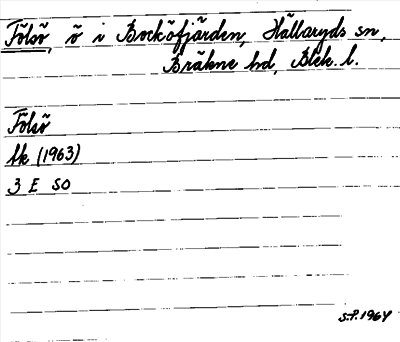 Fölsö, ö i Bocköfjärden, Hällaryds sn,
Bräkne hd, Blek. l.
Fölsö
Ek (1963)
3 E SO
S.P. 1964